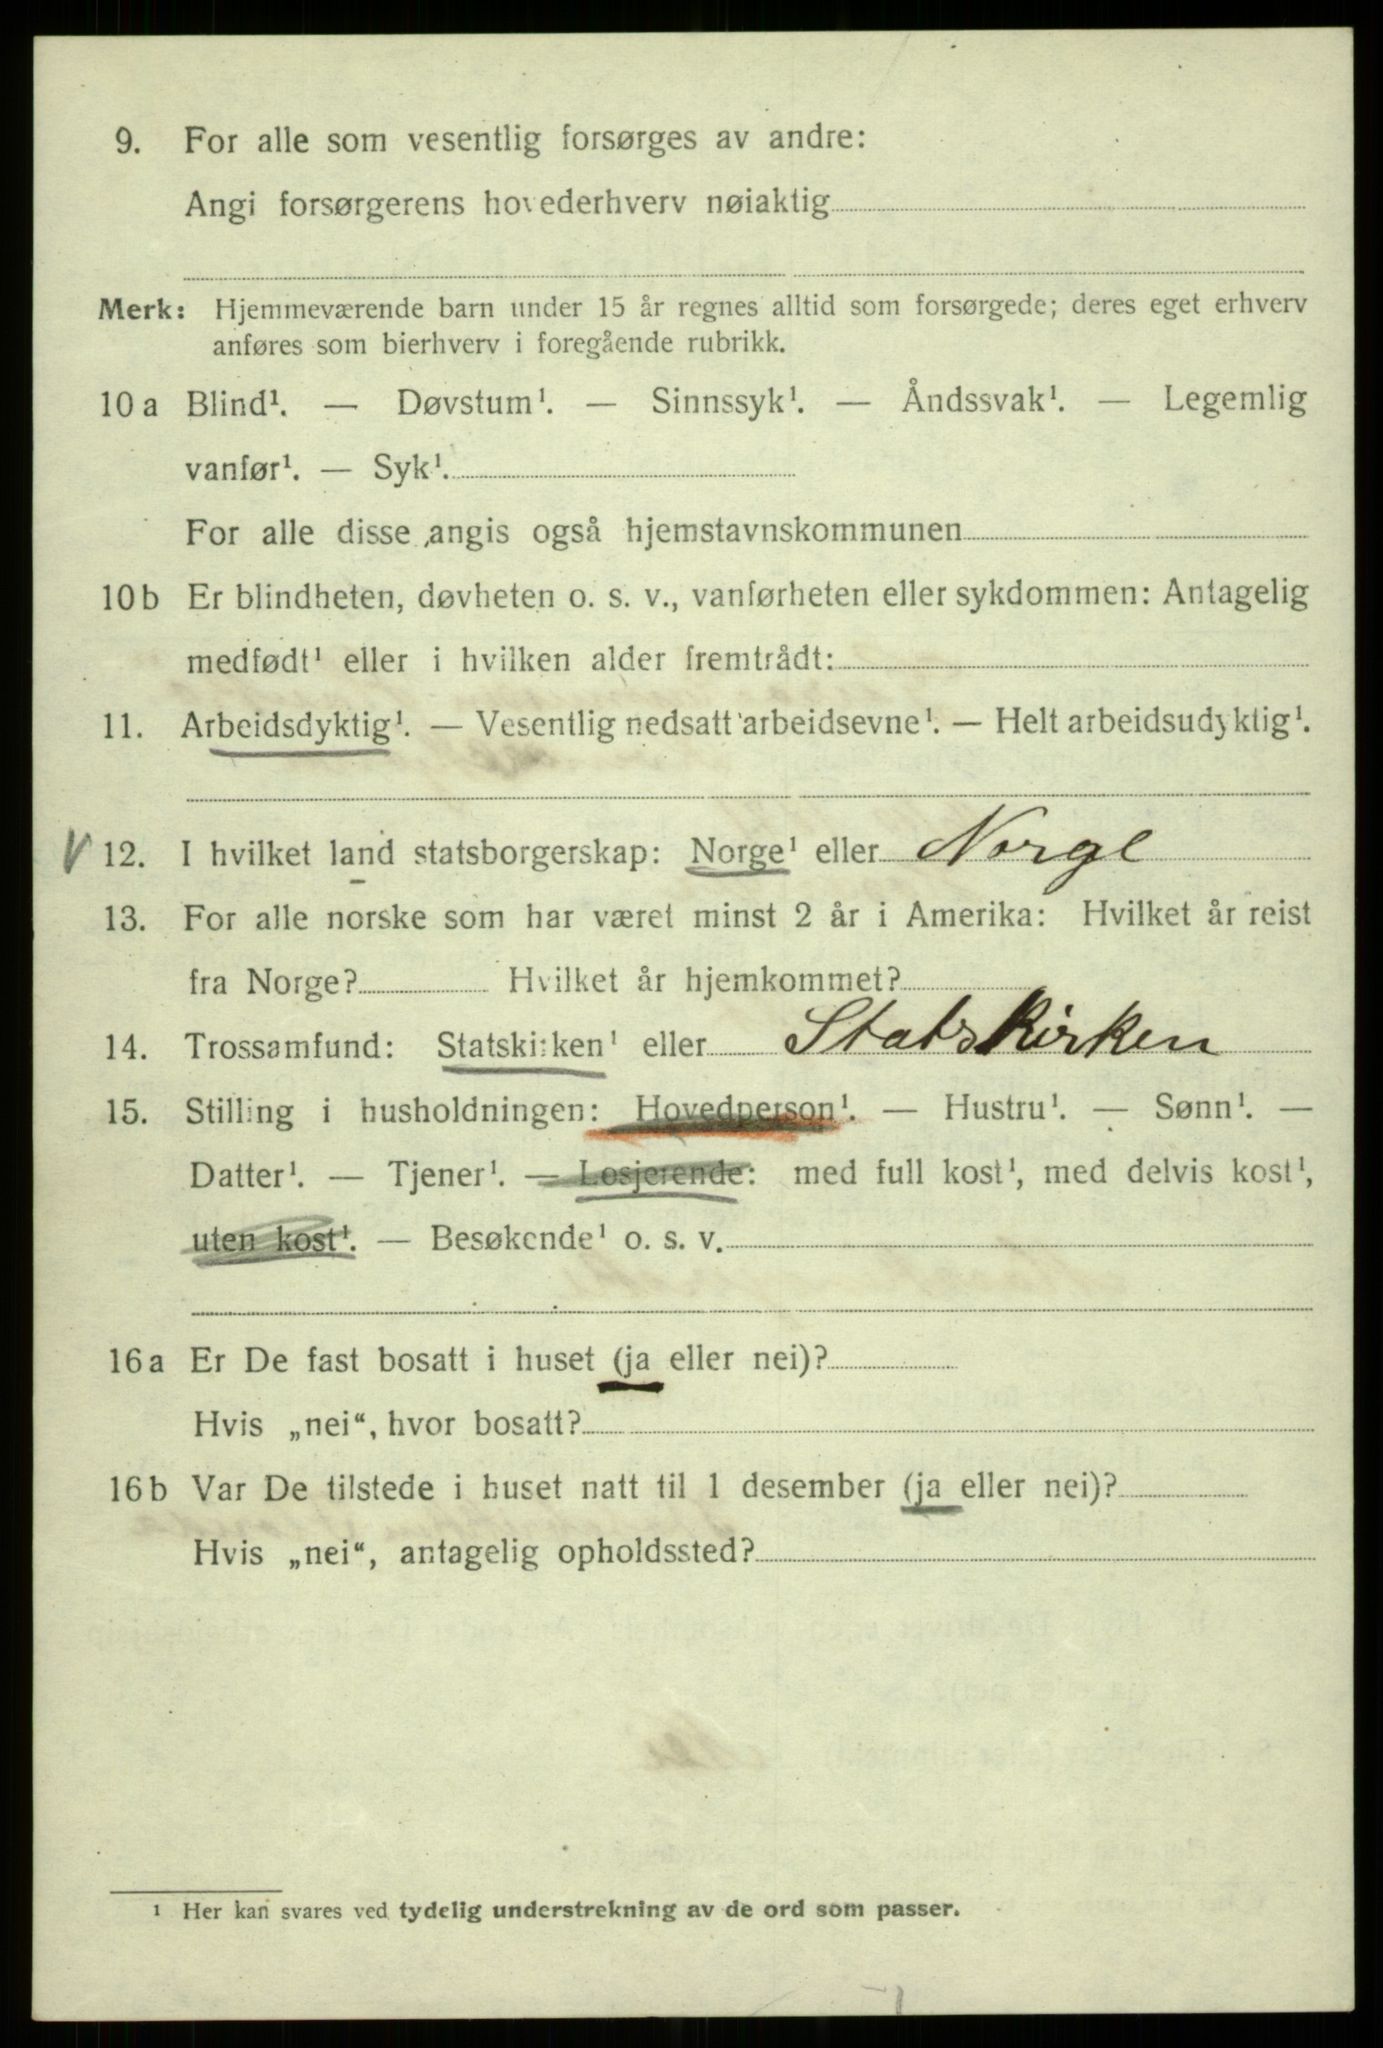 9. For alle som vesentlig forsørges av andre:
Angi forsørgerens hovederhverv nøiaktig
Merk: Hjemmeværende barn under 15 år regnes alltid som forsørgede; deres eget erhverv
anføres som bierhverv i foregående rubrikk.
10 a Blind¹. — Døvstum¹. — Sinnssyk¹. — Åndssvak¹. — Legemlig
vanfør¹. — Syk¹.
For alle disse angis også hjemstavnskommunen
10 b Er blindheten, døvheten o. s. v., vanførheten eller sykdommen: Antagelig
medfødt¹ eller i hvilken alder fremtrådt:
11. Arbeidsdyktig¹. — Vesentlig nedsatt arbeidsevne¹. — Helt arbeidsudyktig¹.
V 12. I hvilket land statsborgerskap: Norge¹ eller Norge
13. For alle norske som har været minst 2 år i Amerika: Hvilket år reist
fra Norge? Hvilket år hjemkommet?
14. Trossamfund: Statskirken¹ eller Statskirken
15. Stilling i husholdningen: Hovedperson¹. — Hustru¹. — Sønn¹. —
Datter¹. — Tjener¹. — Losjerende: med full kost¹, med delvis kost¹,
uten kost¹. — Besøkende¹ o. s. v.
16 a Er De fast bosatt i huset (ja eller nei)?
Hvis „nei“, hvor bosatt?
16 b Var De tilstede i huset natt til 1 desember (ja eller nei)?
Hvis „nei“, antagelig opholdssted?
¹ Her kan svares ved tydelig understrekning av de ord som passer.